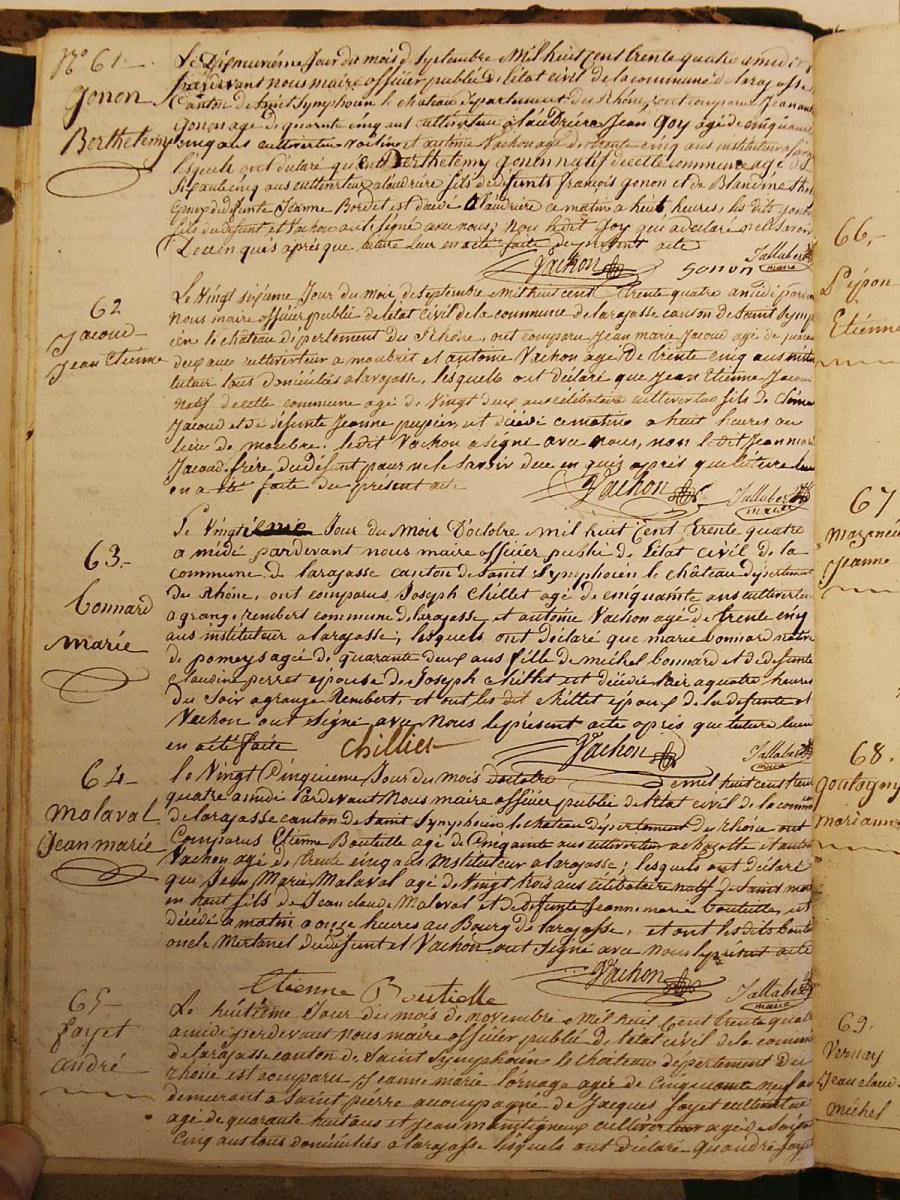 N° 61
Gonon
Berthelemy
Le Dixneuvième Jour du mois de Septembre Mil huit cent trente quatre a midi
pardevant nous maire officier public de l'état civil de la commune de larajasse
Canton de Saint Symphorien le château département du Rhône, ont comparu Jean
Gonon agé de quarante cinq ans cultivateur a laudrière Jean Goy agé de cinquante
cinq ans cultivateur voisin et antoine Vachon agé de trente cinq ans instituteur
lesquels ont déclaré que Berthelemy Gonon natif de cette commune agé de
Soixante cinq ans cultivateur a laudrière fils de défunts françois gonon et de Blandine
Epoux de défunte Jeanne Bordet est décédé a laudrière ce matin a huit heures, les dits gonon
fils du défunt et Vachon ont signé avec nous, non ledit Goy qui a déclaré ne le Savoir
De ce enquis après que lecture leur en a été faite du présent acte
Vachon Gonon Jallabert maire
62
Jacoud
Jean Etienne
Le Vingt sixieme Jour du mois de Septembre Mil huit cent trente quatre a midi pardevant
Nous maire officier public de l'état civil de la commune de larajasse canton de Saint Symp
ien le château département du Rhône, ont comparu Jean marie Jacoud agé de
deux ans cultivateur a et antoine Vachon agé De trente cinq ans insti
tuteur tous domiciliés a larajasse, lesquels ont déclaré que Jean Etienne Jacoud
natif de cette commune agé de Vingt deux ans célibataire cultivateur fils de
Jacoud et de défunte Jeanne pupier, est décédé ce matin a huit heures au
lieu de ledit Vachon a signé avec nous, non ledit Jean marie
Jacoud frère du défunt pour ne le Savoir de ce enquis après que lecture leur
en a été faite du présent acte
Vachon Jallabert maire
63
Bonnard
marie
Le Vingtième Jour du Mois D'octobre mil huit Cent trente quatre
a midi pardevant nous maire officier public de l'état civil de la
commune de larajasse canton de Saint Symphorien le château département
du Rhône, ont comparus Joseph Chillet agé de cinquante ans cultivateur
a grange rembert commune de larajasse et antoine Vachon agé de trente cinq
ans instituteur a larajasse, lesquels ont déclaré que marie bonnard native
de pomeys agé de quarante deux ans fille de michel bonnard et de défunte
claudine perret epouse de Joseph Chillet est décédé hier a quatre heures
du Soir a grange Rembert, et ont les dit Chillet époux de la défunte et
Vachon ont signé avec Nous le présent acte après que lecture leur
en a été faite
Chillier Vachon Jallabert maire
64
Malaval
Jean marie
le Vingt Cinquieme Jour du mois doctobre mil huit cent trente
quatre a midi Pardevant Nous maire officier public de l'état civil de la commune
de larajasse canton de Saint Symphorien le château département du Rhône ont
Comparus Etienne Bouteille agé de Cinquante ans cultivateur a et antoine
Vachon agé de trente cinq ans Instituteur a larajasse; lesquels ont déclaré
que Jean Marie Malaval agé de Vingt trois ans célibataire natif de Saint
en haut fils de Jean claude Malaval et de défunte Jeanne marie bouteille, est
décédé ce matin a onze heures au Bourg de larajasse, et ont les dits
oncle Maternel du défunt et Vachon ont signé avec nous le présent acte
Vachon
Etienne Boutielle Jallabert maire
65
fayet
andré
Le huitième Jour du mois de novembre Mil huit Cent trente quatre
a midi pardevant Nous maire officier public de l'état civil de la commune
de larajasse canton de Saint Symphorien le château département Du
rhône est comparu Jeanne marie agée de cinquante neuf ans
demeurant a Saint pierre accompagné de Jacques fayet cultivateur
agé de quarante huit ans et Jean cultivateur agé de Soixante
Cinq ans tous domiciliés a larajasse lesquels ont déclaré qu'andré fayet
66
Etienne
67
Jeanne
68.
marianne
69.
Vernay
Jean claude
michel